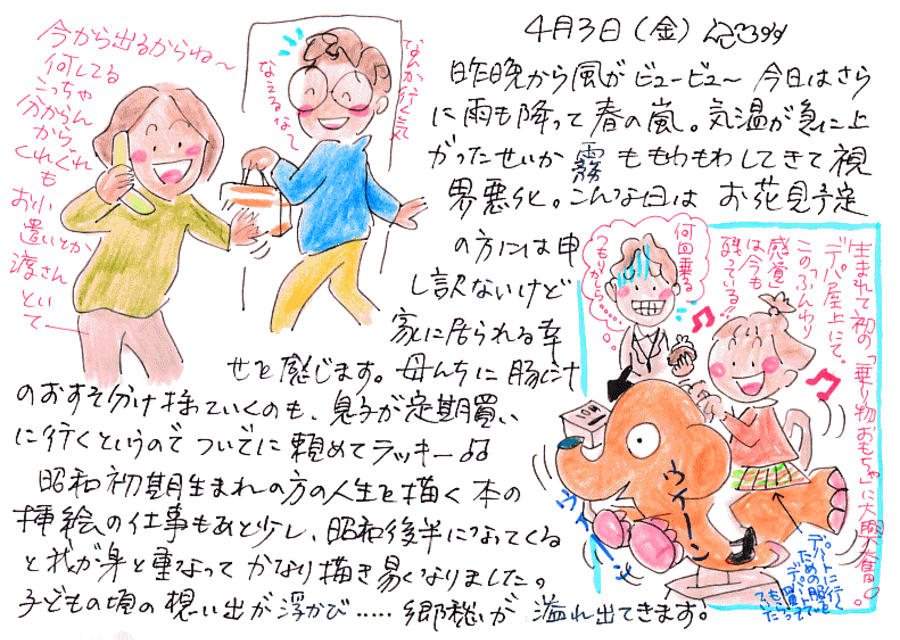 4月3日(金)
昨晩から風がビュービュー〜 今日はさら
に雨も降って春の嵐。気温が急に上
がったせいか霧ももわもわしてきて視
界悪化。こんな日はお花見予定
の方には申
し訳ないけど
家に居られる幸
せを感じます。母んちに豚汁
のおすそ分け持っていくのも、息子が定期買い
に行くというのでついでに頼めてラッキー
昭和初期生まれの方の人生を描く本の
挿絵の仕事もあと少し、昭和後半になってくる
と我が身と重なってかなり描き易くなりました。
子どもの頃の想い出が浮かび……郷愁が溢れ出てきます。
今から出るからね〜
何してる
こっちゃ
分からん
から、
くれぐれ
も
お小
遣いとか
渡さん
とい
て—
なんか行く気
なえるな〜
生まれて初の「乗り物おもちゃ」に大興奮。
デパ屋上にて。
この「ふんわり
感覚
は今も
残っている!!
何回乗る
つもりかしら……
10円
ウイーン
ウイーン
デパートに行く
ための服を
デパートで
買って
いた